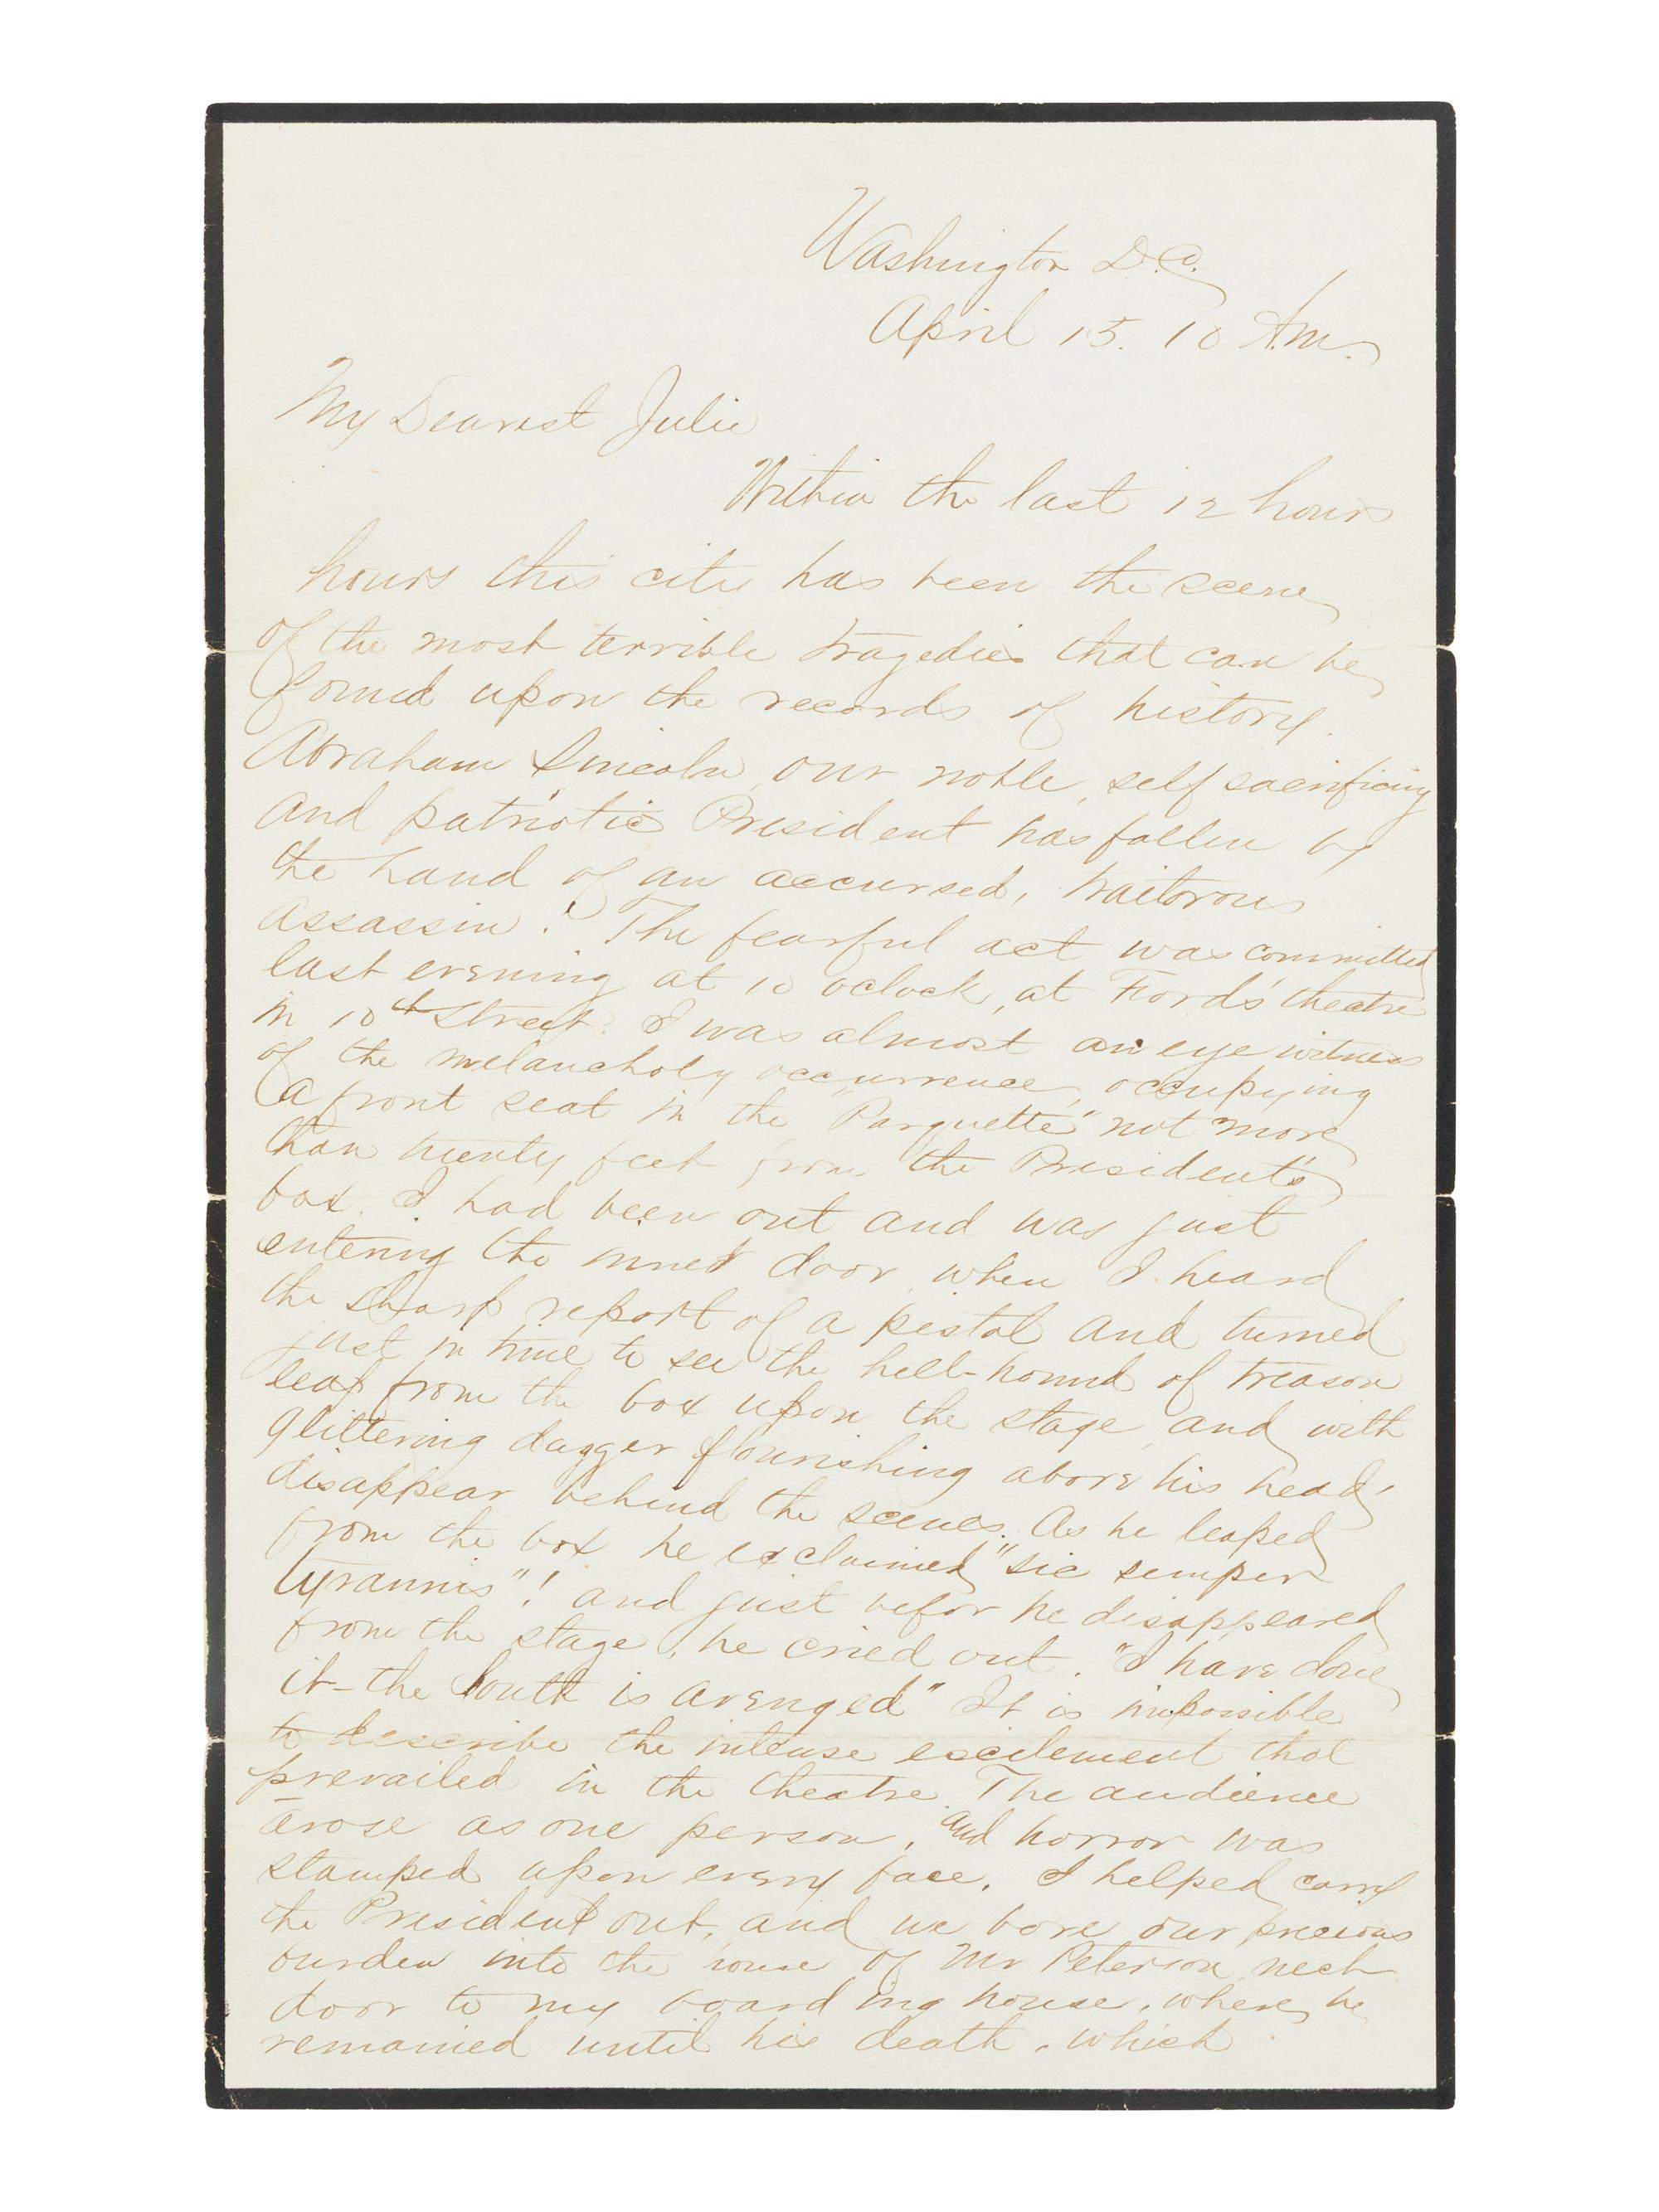 Washington D.C.
April 15. 10 A.m.
My Dearest Julie
Within the last 12 hours
hours this city has been the scene
of the most terrible tragedies that can be
found upon the records of history.
Abraham Lincoln, our noble, self sacrificing
and patriotic President has fallen by
the hand of an accursed, traitorous
assassin! The fearful act was committed
last evening at 10 oclock, at Fords' theatre
in 10th Street. I was almost an eye witness
of the melancholy occurrence, occupying
a front seat in the "Parquette" not more
than twenty feet from the President's
box. I had been out and was just
entering the inner door, when I heard
the sharp report of a pistol and turned
just in time to see the hell-hound of treason
leap from the box upon the stage, and with
glittering dagger flourishing above his head,
disappear behind the scenes. As he leaped
from the box he exclaimed "sic semper
tyrannis"! and just befor he disappeared
from the stage, he cried out. "I have done
it - the South is avenged" It is impossible
to describe the intense excitement that
prevailed in the theatre. The audience
arose as one person, and horror was
stamped upon every face. I helped carry
the President out, and we bore our precious
burden into the house of Mr Peterson, next
door to my boarding house, where he
remained until his death, which